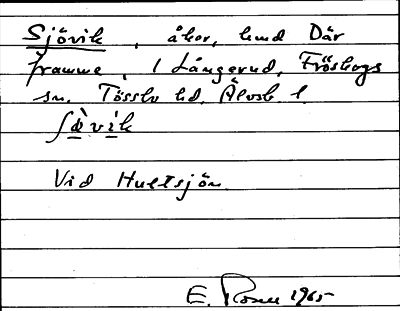 Sjövik, åker, hmd Där
framme, i Långerud, Fröskogs
sn. Tösslv hd. Älvsb. l.
ʃæ̀vik
Vid Hultsjön
E. Rosen 1965